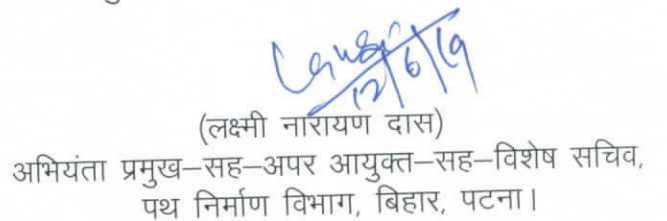 12/6/19
(लक्ष्मी नारायण दास)
अभियंता प्रमुख–सह–अपर आयुक्त–सह–विशेष सचिव,
पथ निर्माण विभाग, बिहार, पटना।